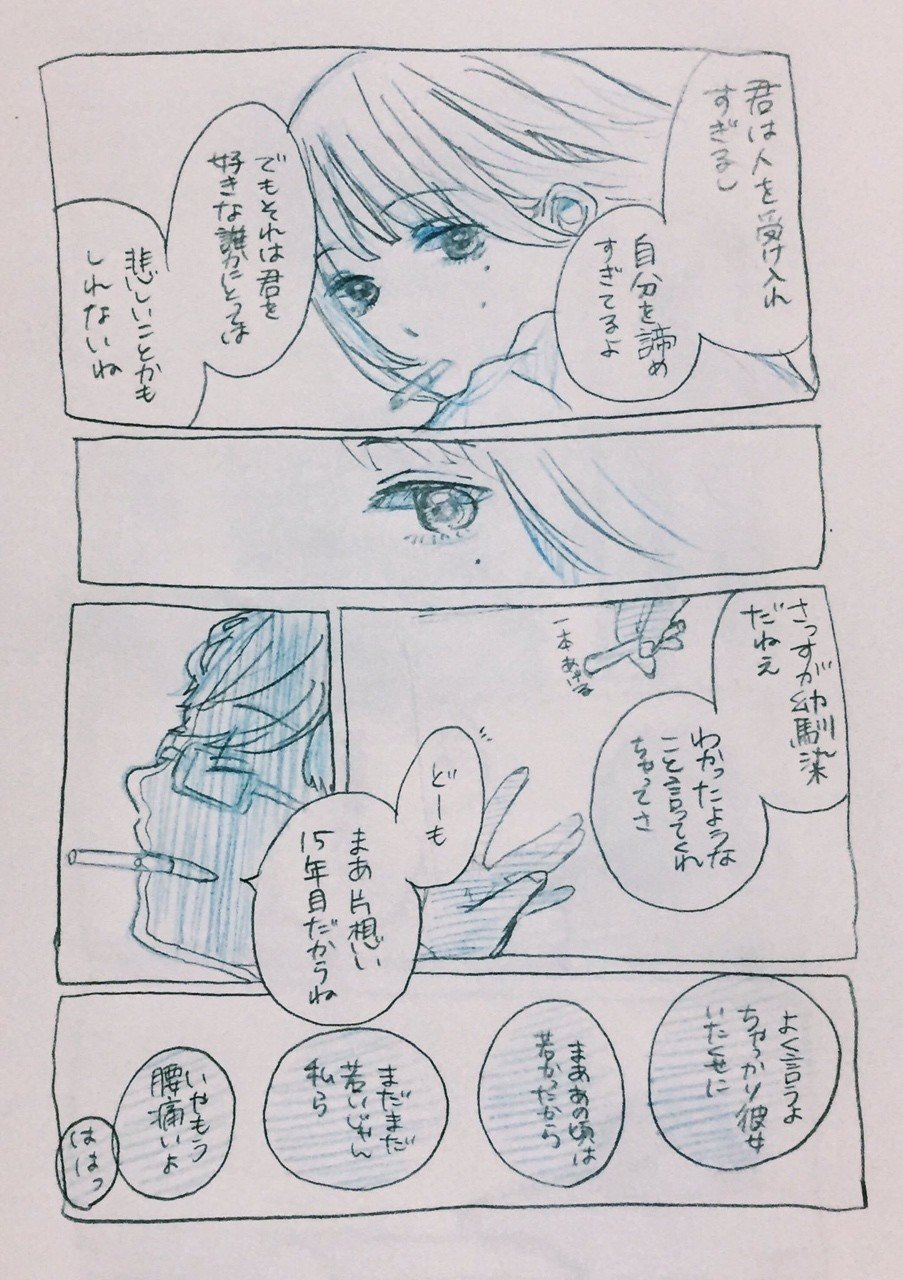 君は人を受け入れ
すぎるし
自分を諦め
すぎてるよ
でもそれは君を
好きな誰かにとっては
悲しいことかも
しれないね
さっすが幼馴染
だねえ
わかったような
こと言ってくれ
ちゃってさ
一本あげる
どーも
まあ片想い
15年目だからね
よく言うよ
ちゃっかり彼女
いたくせに
まああの頃は
若かったから
まだまだ
若いじゃん
私ら
いやもう
腰痛いよ
ははっ